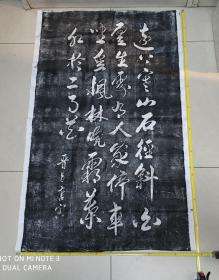 遠上寒山石徑斜白
雲生處有人家停車
坐愛楓林晚霜葉
紅於二月花
ON MI NOTE 3
DUAL CAMERA